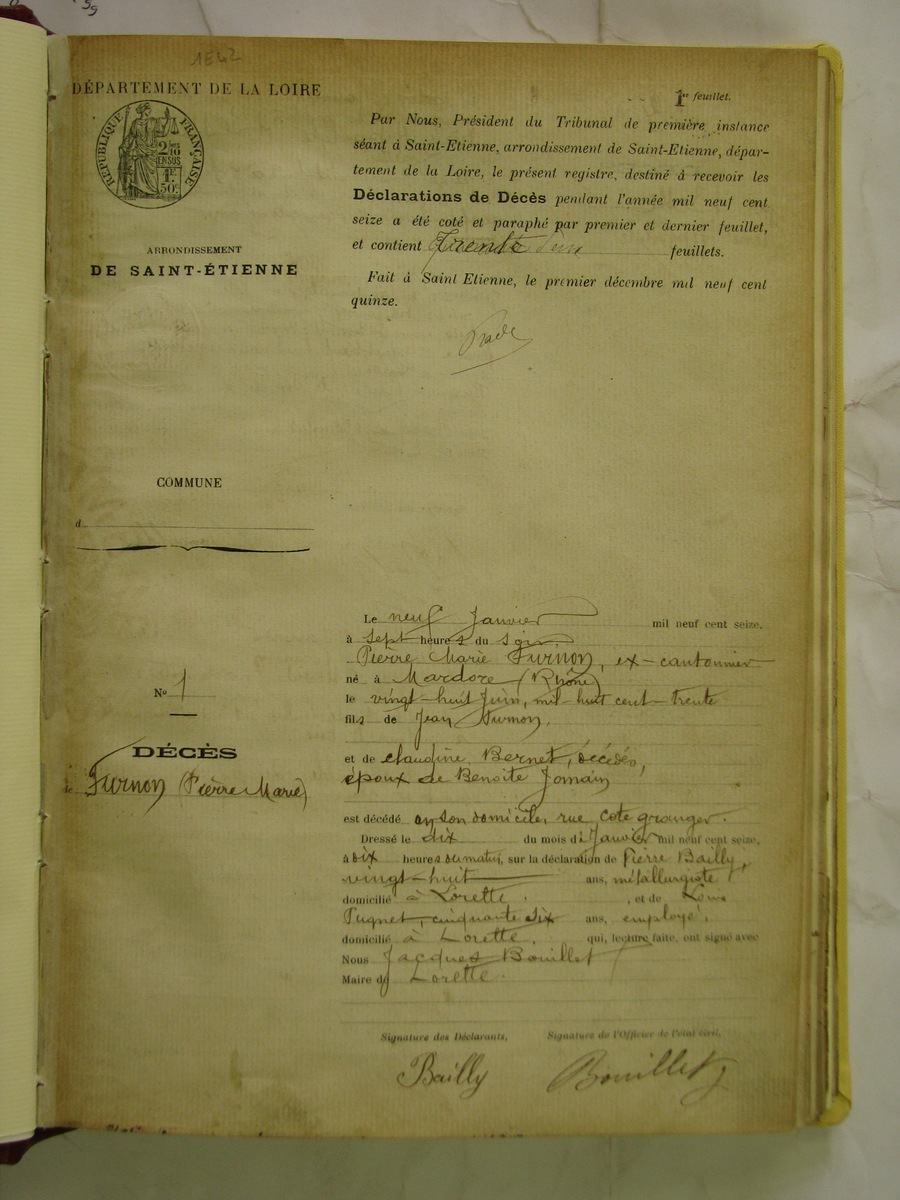 1E42
DÉPARTEMENT DE LA LOIRE
RÉPUBLIQUE FRANÇAISE
2/10 EN SUS
1F.
50c
ARRONDISSEMENT
DE SAINT-ÉTIENNE
COMMUNE
d
1er feuillet.
Par Nous, Président du Tribunal de première instance
séant à Saint-Etienne, arrondissement de Saint-Etienne, dépar-
tement de la Loire, le présent registre, destiné à recevoir les
Déclarations de Décès pendant l'année mil neuf cent
seize a été coté et paraphé par premier et dernier feuillet,
et contient Trente deux feuillets.
Fait à Saint Etienne, le premier décembre mil neuf cent
quinze.
No 1
DÉCÈS
de Furnon (Pierre Marie)
Le neuf Janvier mil neuf cent seize.
à sept heures du soir,
Pierre Marie Furnon, ex-cantonnier
né à Mardore (Rhône)
le vingt-huit Juin, mil-huit cent-trente
fils de Jean Furnon,
et de claudine Bernet, décédés,
époux de Benoite Jomain
est décédé en son domicile, rue cote granger.
Dressé le dix du mois de Janvier mil neuf cent seize,
à dix heures du matin, sur la déclaration de Pierre Bailly,
vingt-huit ans, métallurgiste
domicilié à Lorette, et de Louis
Pugnet, cinquante six ans, employé,
domicilié à Lorette, qui, lecture faite, ont signé avec
Nous Jacques Bouillet
Maire de Lorette.
Signature des Déclarants, Signature de l'Officier de l'état civil,
Bailly Bouillet